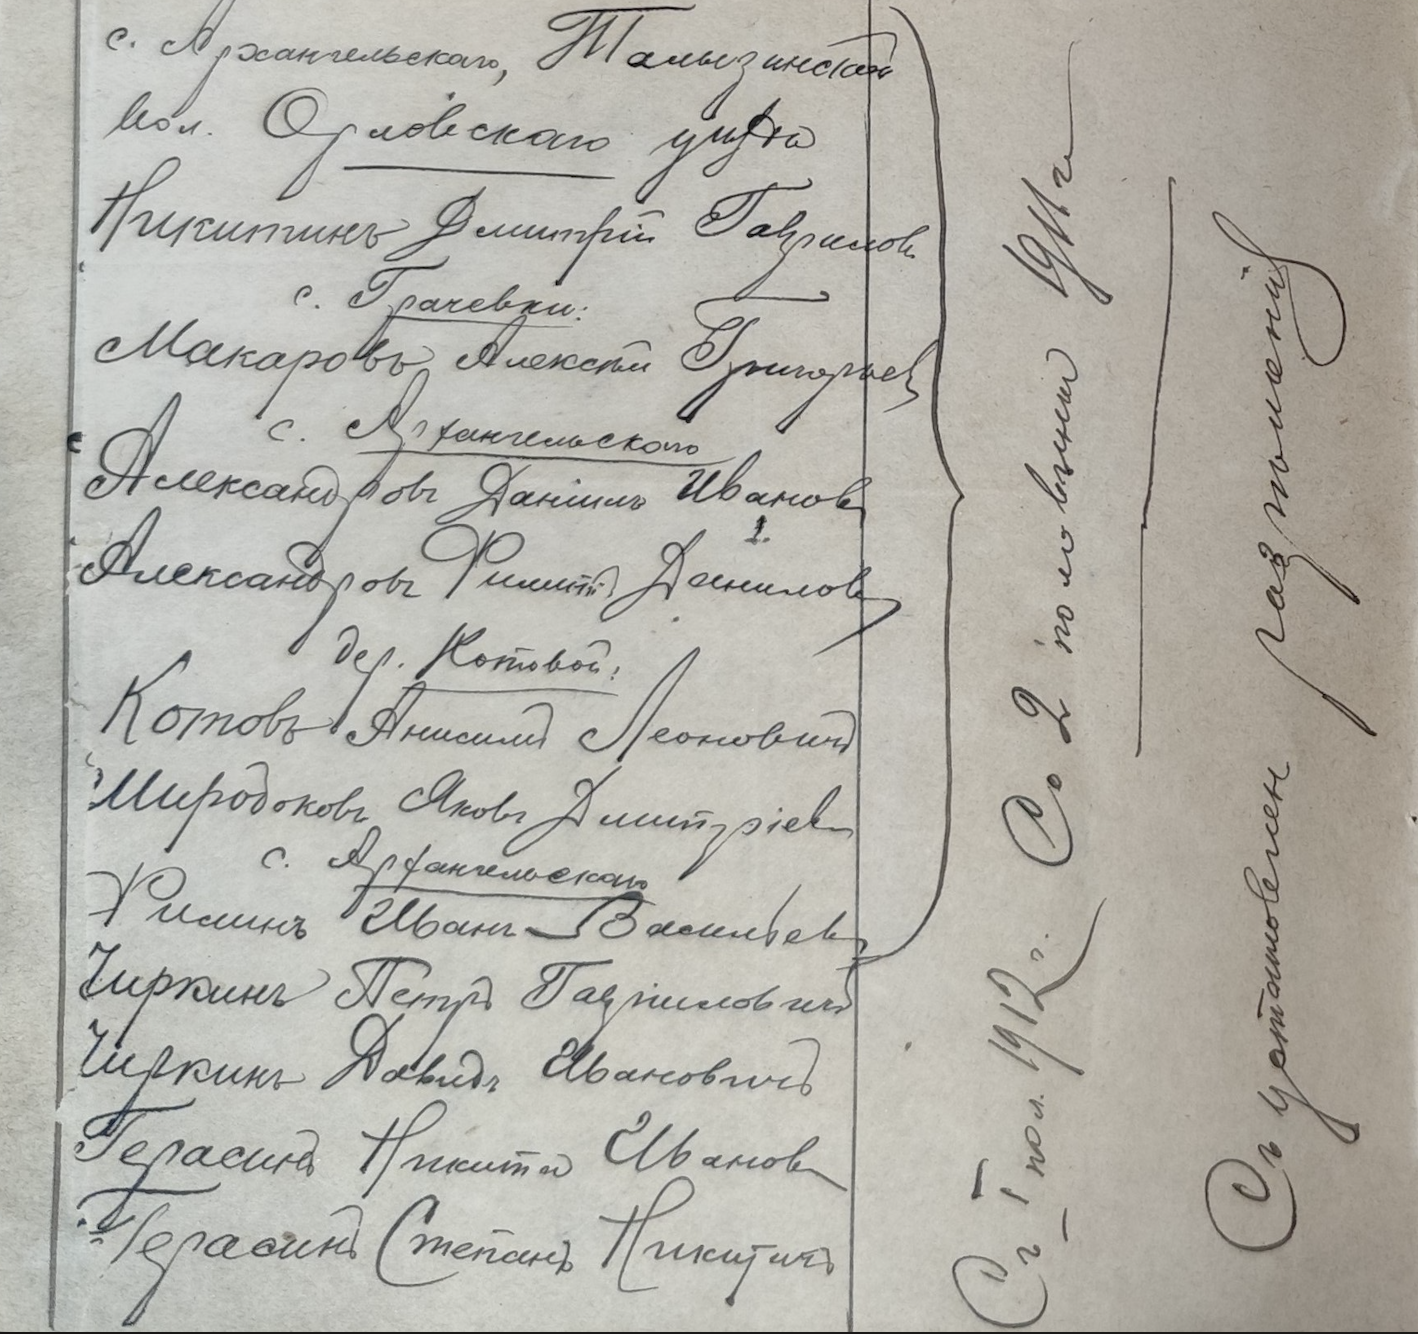 с. Архангельскаго, Талызинской
вол. Орловскаго уѣзда
Никитинъ Дмитрій Гаврилов
с. Грачевки:
Макаровъ Алексѣй Григорьев
с. Архангельскаго
Александровъ Даніилъ Иванов
1.
Александровъ Филиппъ Данилов
дер. Котовой:
Котовъ Анисимъ Леоновичъ
Яковъ Дмитріев
с. Архангельскаго
Филинъ Иванъ Васильев
Чиркинъ Петръ Гавриловичъ
Чиркинъ Давидъ Ивановичъ
Герасинъ Никита Иванов
Герасинъ Степанъ Никитичъ
Съ 1 пол. 1912 г. Со 2 половины 1911 г
Съ установлен